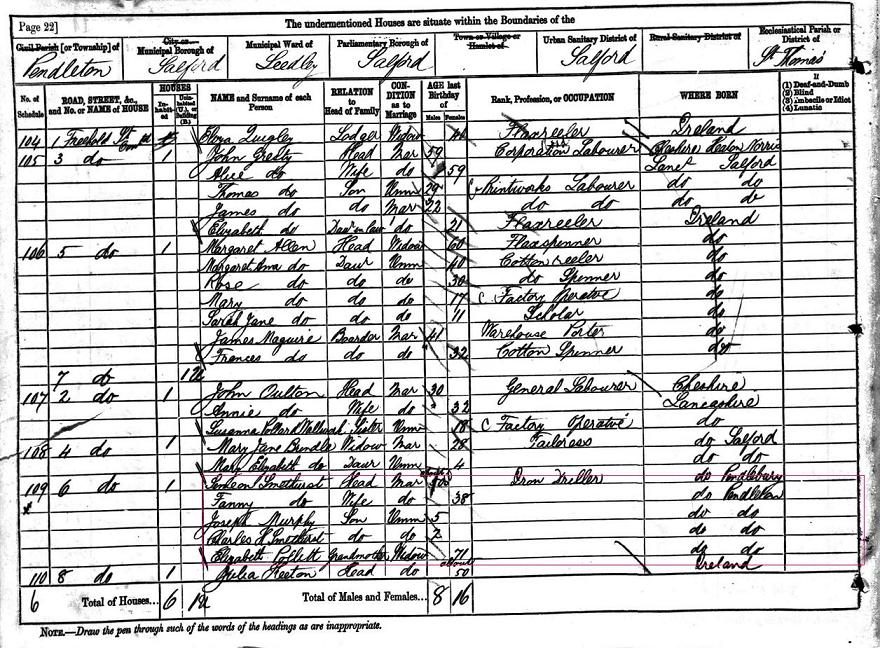 Page 22]
The undermentioned Houses are situate within the Boundaries of the
Civil Parish [or Township] of
City or Municipal Borough of
Municipal Ward of
Parliamentary Borough of
Town or Village or Hamlet of
Urban Sanitary District of
Rural Sanitary District of
Ecclesiastical Parish or District of
Pendleton Salford Seedley Salford Salford St Thomas
No. of Schedule
ROAD, STREET, &c., and No. or NAME of HOUSE
HOUSES
Inhabited
Uninhabited (U.), or Building (B.)
NAME and Surname of each Person
RELATION to Head of Family
CONDITION as to Marriage
AGE last Birthday of
Males Females
Rank, Profession, or OCCUPATION
WHERE BORN
If
(1) Deaf-and-Dumb
(2) Blind
(3) Imbecile or Idiot
(4) Lunatic
104 1 Freehold St Eliza Quigley Lodger Widow Flaxreeler Ireland
105 3 do 1 John Head Mar 59 Corporation Labourer Cheshire Heaton Norris
Alice do Wife do 59 Lancs Salford
Thomas do Son Unm 29 Printworks Labourer do do
James do do Mar 22 do do do do
Elizabeth do Daur in law do 21 Flaxreeler Ireland
106 5 do 1 Margaret Allen Head Widow 60 Flaxspinner do
Margaret Ann do Daur Unm 40 Cotton reeler do
Rose do do do 30 do Spinner do
Mary do do do 17 C Factory Operative do
Sarah Jane do do do 11 Scholar do
James Maguire Boarder Mar 41 Warehouse Porter do
Frances do do do 32 Cotton Spinner do
7 do 1U
107 2 do 1 John Oulton Head Mar 30 General Labourer Cheshire
Annie do Wife do 32 Lancashire
Susanna Sister Unm 18 C Factory Operative do
108 4 do 1 Mary Jane Brundle Widow Mar 28 Tailoress do Salford
Mary Elizabeth do Daur Unm 4 do do
109 6 do 1 Simeon Smethurst Head Mar Iron Driller do Pendlebury
Fanny do Wife do 38 do Pendleton
Joseph Murphy Son Unm 5 do do
Charles H Smethurst do do 2 do do
Elizabeth Pollett Grandmother Widow 71 do do
110 8 do 1 Julia Heeton Head do about 50 Ireland
6 Total of Houses... 6 1U Total of Males and Females... 8 16
NOTE.—Draw the pen through such of the words of the headings as are inappropriate.